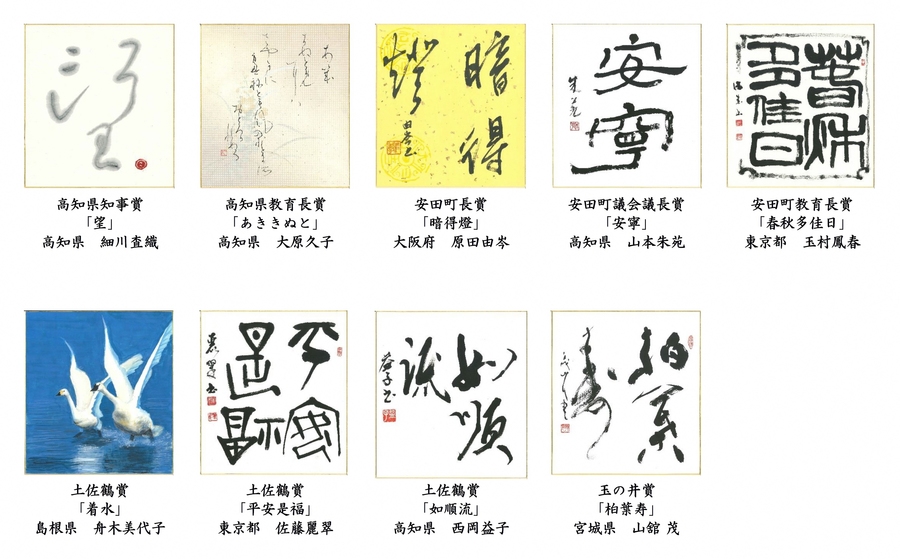 高知県知事賞
「望」
高知県　細川査織
高知県教育長賞
「あききぬと」
高知県　大原久子
暗得
燈
安田町長賞
「暗得燈」
大阪府　原田由岑
安
寧
安田町議会議長賞
「安寧」
高知県　山本朱苑
春秋
多佳日
安田町教育長賞
「春秋多佳日」
東京都　玉村鳳春
土佐鶴賞
「着水」
島根県　舟木美代子
平安
是福
土佐鶴賞
「平安是福」
東京都　佐藤麗翠
如順
流
土佐鶴賞
「如順流」
高知県　西岡益子
柏葉
寿
玉の井賞
「柏葉寿」
宮城県　山舘 茂